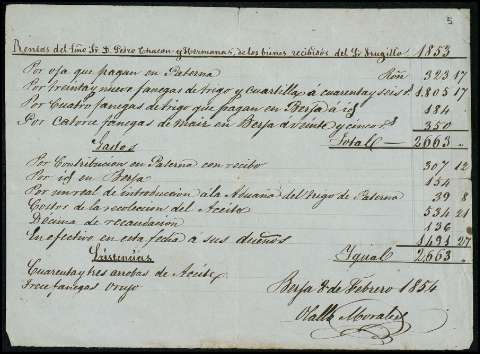 5
Rentas del Sñr Dr D. Pedro Chacon y Hermanas, de los bienes recibidos del Sr Trugillo 1853
Por oja que pagan en Paterna Rvñ 323 17
Por treinta y nueve fanegas de trigo y cuartilla á cuarenta y seis rs 1.805 17
Por Cuatro fanegas de trigo que pagan en Berja á id 184
Por Catorce fanegas de maiz en Berja á veinte y cinco rs 350
Gastos Total 2663
Por Contribucion en Paterna con recibo 307 12
Por id en Berja 154
Por un real de introduccion á la Aduana del trigo de Paterna 39 8
Costos de la recoleccion del Aceite 534 21
Decima de recaudacion 136
En efectivo en esta fecha a sus dueños 1491 27
Igual 2,663
Existencias
Cuarenta y tres arrobas de Aceite
Trece fanegas orujo
Berja de Febrero 1854
Morales